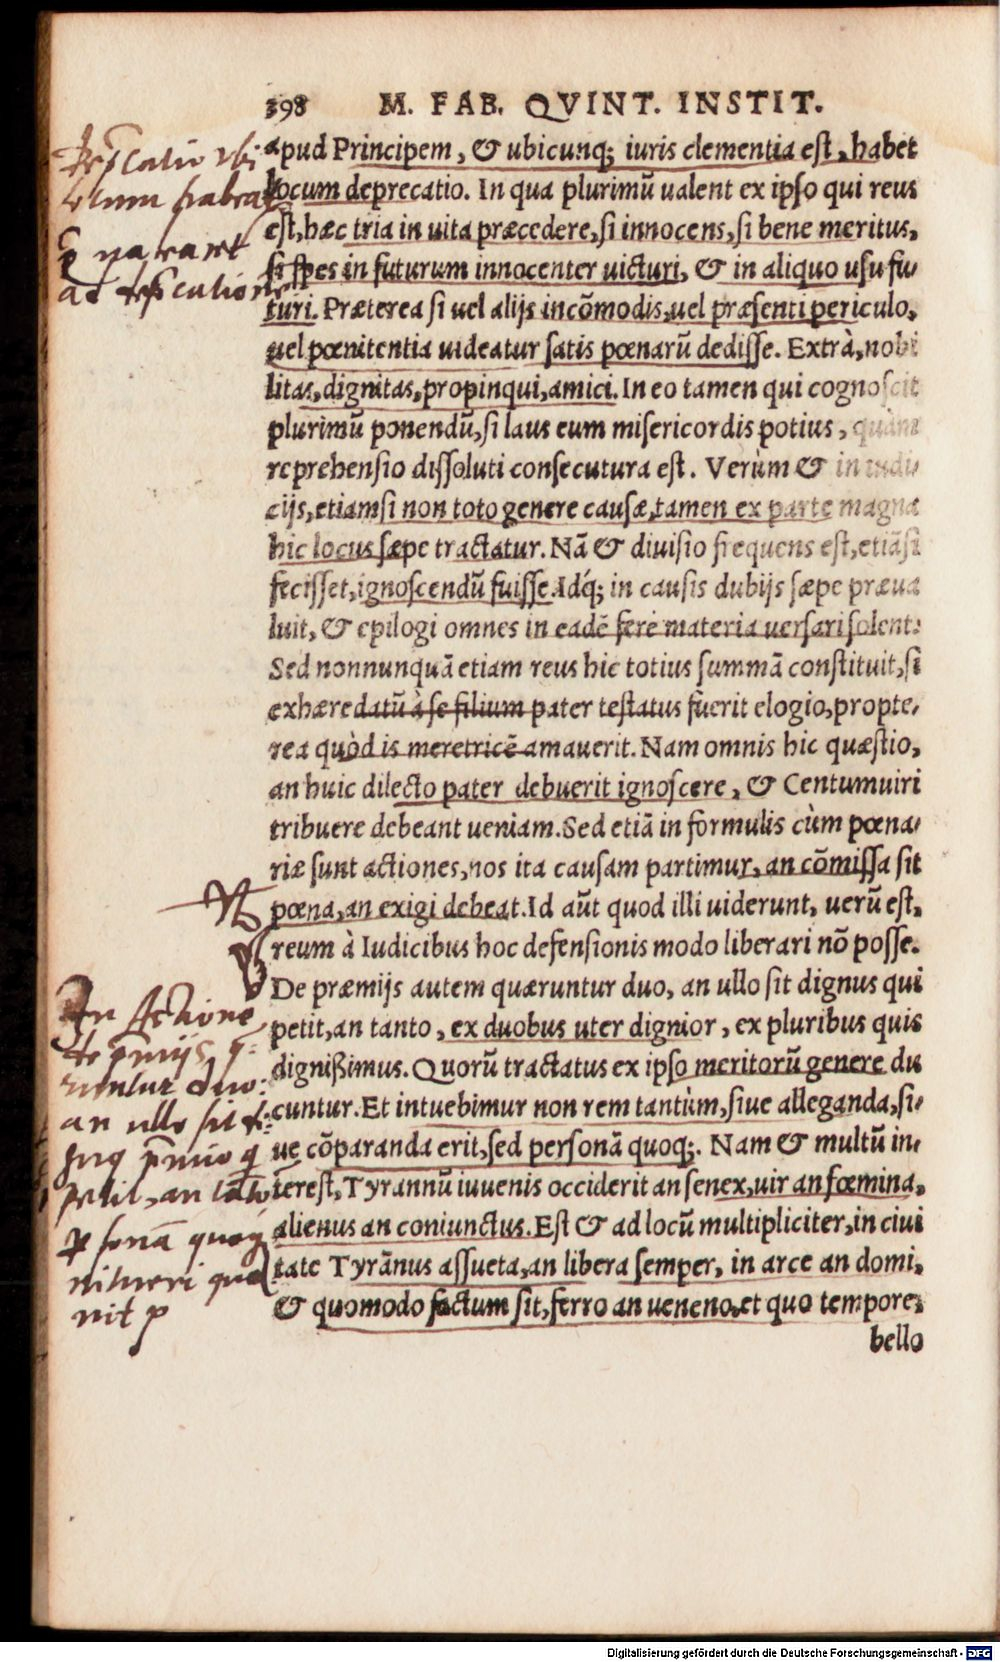 398 M. FAB. QVINT. INSTIT.
apud Principem, & ubicunq; iuris clementia est, habet
locum deprecatio. In qua plurimū ualent ex ipso qui reus
est, hæc tria in uita præcedere, si innocens, si bene meritus,
si spes in futurum innocenter uicturi, & in aliquo usu fu-
turi. Præterea si uel alijs incōmodis, uel præsenti periculo,
uel pœnitentia uideatur satis pœnarū dedisse. Extrà, nobi
litas, dignitas, propinqui, amici. In eo tamen qui cognoscit
plurimū ponendū, si laus eum misericordis potius, quàm
reprehensio dissoluti consecutura est. Verùm & in iudi-
cijs, etiamsi non toto genere causæ, tamen ex parte magna
hic locus sæpe tractatur. Nā & diuisio frequens est, etiāsi
fecisset, ignoscendū fuisse. Idq́; in causis dubijs sæpe præua
luit, & epilogi omnes in eadē ferè materia uersari solent.
Sed nonnunquā etiam reus hic totius summā constituit, si
exhæredatū à se filium pater testatus fuerit elogio, propte-
rea quòd is meretricē amauerit. Nam omnis hic quæstio,
an huic dilecto pater debuerit ignoscere, & Centumuiri
tribuere debeant ueniam. Sed etiā in formulis cùm pœna-
riæ sunt actiones, nos ita causam partimur, an cōmissa sit
pœna, an exigi debeat. Id aūt quod illi uiderunt, uerū est,
reum à Iudicibus hoc defensionis modo liberari nō posse.
De præmijs autem quæruntur duo, an ullo sit dignus qui
petit, an tanto, ex duobus uter dignior, ex pluribus quis
dignißimus. Quorū tractatus ex ipso meritorū genere du
cuntur. Et intuebimur non rem tantùm, siue alleganda, si-
ue cōparanda erit, sed personā quoq;. Nam & multū in-
terest, Tyrannū iuuenis occiderit an senex, uir an fœmina,
alienus an coniunctus. Est & ad locū multipliciter, in ciui
tate Tyrānus assueta, an libera semper, in arce an domi,
& quomodo factum sit, ferro an ueneno, et quo tempore,
bello
an ullo sit
petit, an
Digitalisierung gefördert durch die Deutsche Forschungsgemeinschaft - DFG